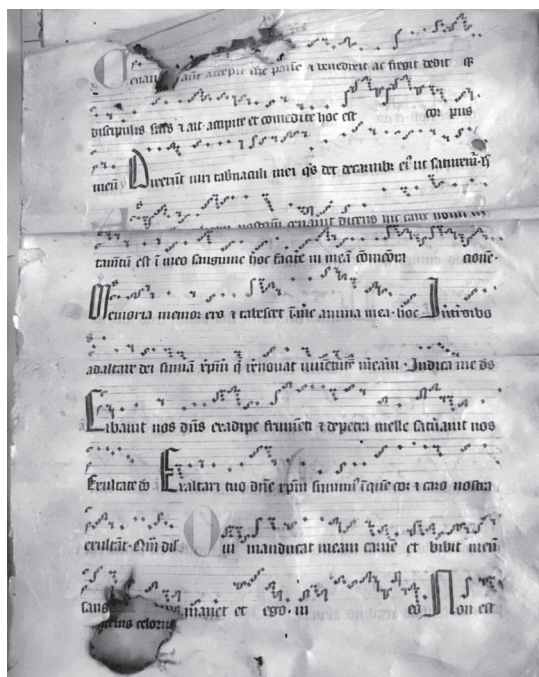 accepit ihc panē ⁊ benedixit ac fregit dedit q̄
discipulis suis ⁊ ait accipite et comedite hoc est cor pus
meū Dixerūt uiri tab̄naculi mei q̄s det de carnib⁊ ei⁹ ut saturem̄
cenauit dicens hic calix noui
tamtū est ī meo sanguine hoc facite in meā cōmemora cione
Memoria memor ero ⁊ tabescet ī me anima mea hoc Introibo
ad altare dei sumā xp̄m q̄ renouat iuuētutē meam Iudica me d̄s
Cibauit nos dn̄s ex adipe frumēti ⁊ de petra melle saturauit nos
Exultate dō Ex altari tuo dn̄e xp̄m sumim⁹ ī quē cor ⁊ caro nostra
exultāt Qm̄ dil Qui manducat meam carnē et bibit meū
sang manet et ego in eo Non est